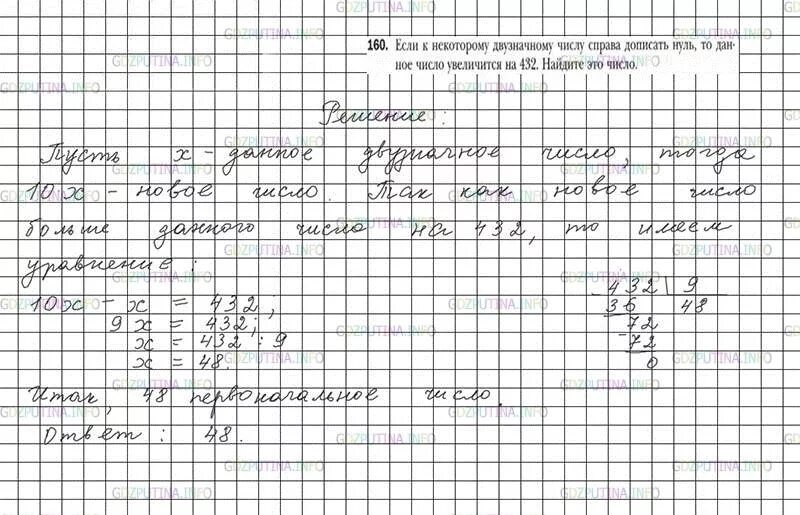 160. Если к некоторому двузначному числу справа дописать нуль, то дан-
ное число увеличится на 432. Найдите это число.
Решение:
Пусть x - данное двузначное число, тогда
10x - новое число. Так как новое число
больше данного числа на 432, то имеем
уравнение:
10x - x = 432;
9x = 432;
x = 432 : 9
x = 48.
432 | 9
- 36 48
72
- 72
0
Итак, 48 первоначальное число.
Ответ: 48.
GDZPUTINA.INFO